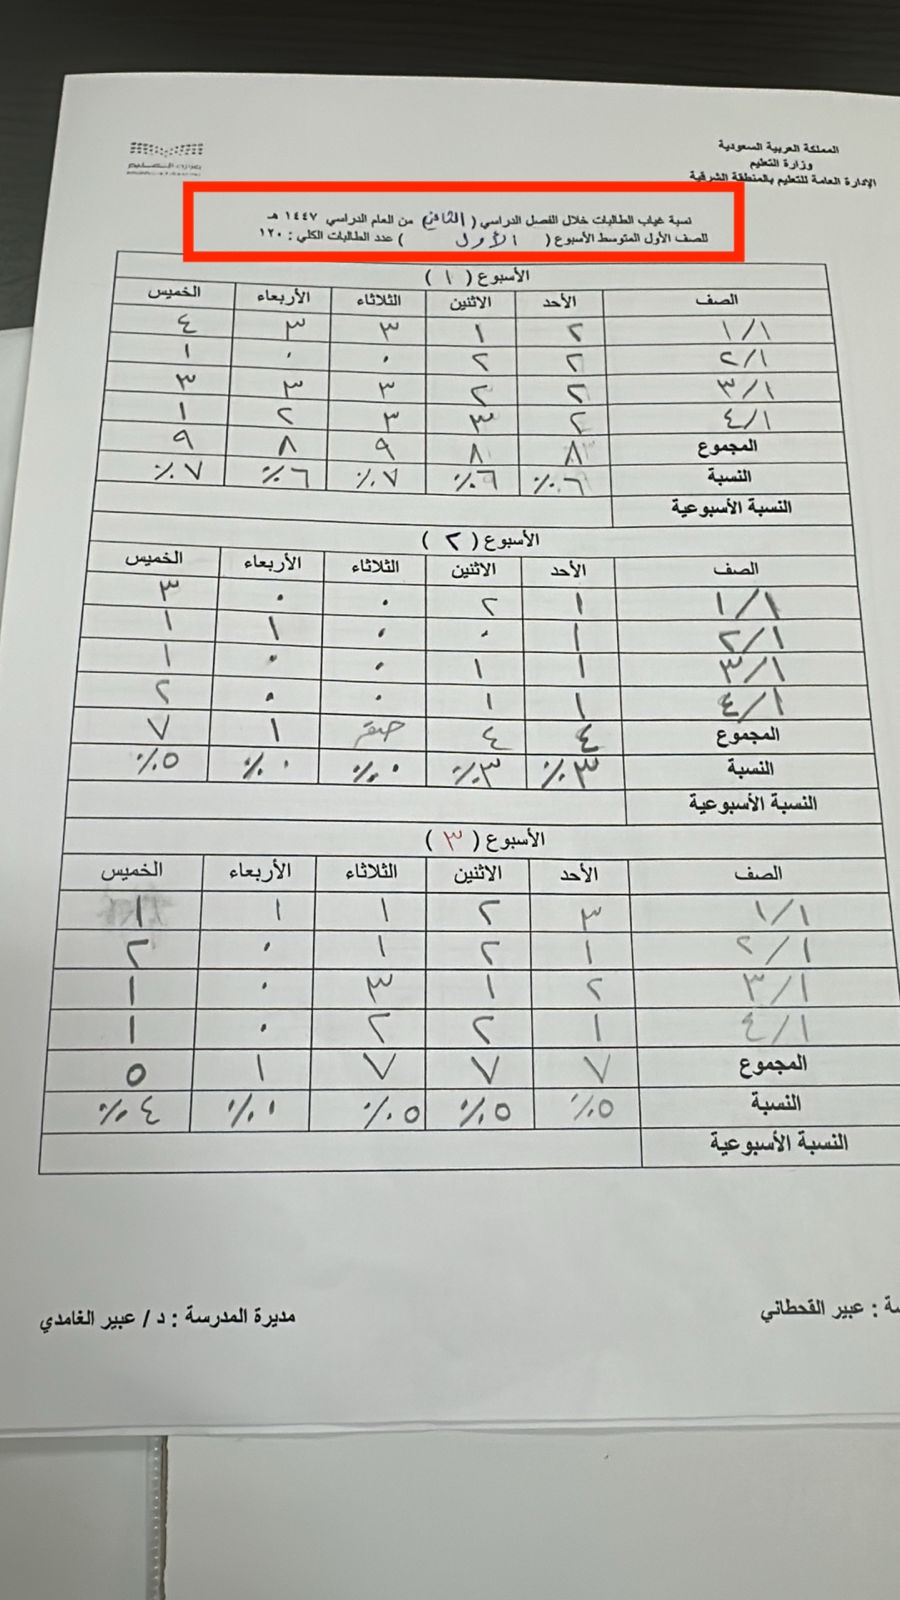 المملكة العربية السعودية
وزارة التعليم
الإدارة العامة للتعليم بالمنطقة الشرقية
وزارة التعليم
نسبة غياب الطالبات خلال الفصل الدراسي ( الثاني ) من العام الدراسي ١٤٤٧ هـ
للصف الأول المتوسط الأسبوع ( الأول ) عدد الطالبات الكلي : ١٢٠
الأسبوع ( ١ )
الصف الأحد الاثنين الثلاثاء الأربعاء الخميس
١/١ ٢ ١ ٣ ٣ ٤
٢/١ ٢ ٢ ٠ ٠ ١
٣/١ ٢ ٢ ٣ ٣ ٣
٤/١ ٢ ٣ ٣ ٢ ١
المجموع ٨ ٨ ٩ ٨ ٩
النسبة ٦٪ ٦٪ ٧٪ ٦٪ ٧٪
النسبة الأسبوعية
الأسبوع ( ٢ )
الصف الأحد الاثنين الثلاثاء الأربعاء الخميس
١/١ ١ ٢ ٠ ٠ ٣
٢/١ ١ ٠ ٠ ١ ١
٣/١ ١ ١ ٠ ٠ ١
٤/١ ١ ١ ٠ ٠ ٢
المجموع ٤ ٤ صفر ١ ٧
النسبة ٣٪ ٣٪ ٠٪ ٠٪ ٥٪
النسبة الأسبوعية
الأسبوع ( ٣ )
الصف الأحد الاثنين الثلاثاء الأربعاء الخميس
١/١ ٣ ٢ ١ ١ ١
٢/١ ١ ٢ ١ ٠ ٢
٣/١ ٢ ١ ٣ ٠ ١
٤/١ ١ ٢ ٢ ٠ ١
المجموع ٧ ٧ ٧ ١ ٥
النسبة ٥٪ ٥٪ ٥٪ ٠٪ ٤٪
النسبة الأسبوعية
: عبير القحطاني
مديرة المدرسة : د / عبير الغامدي